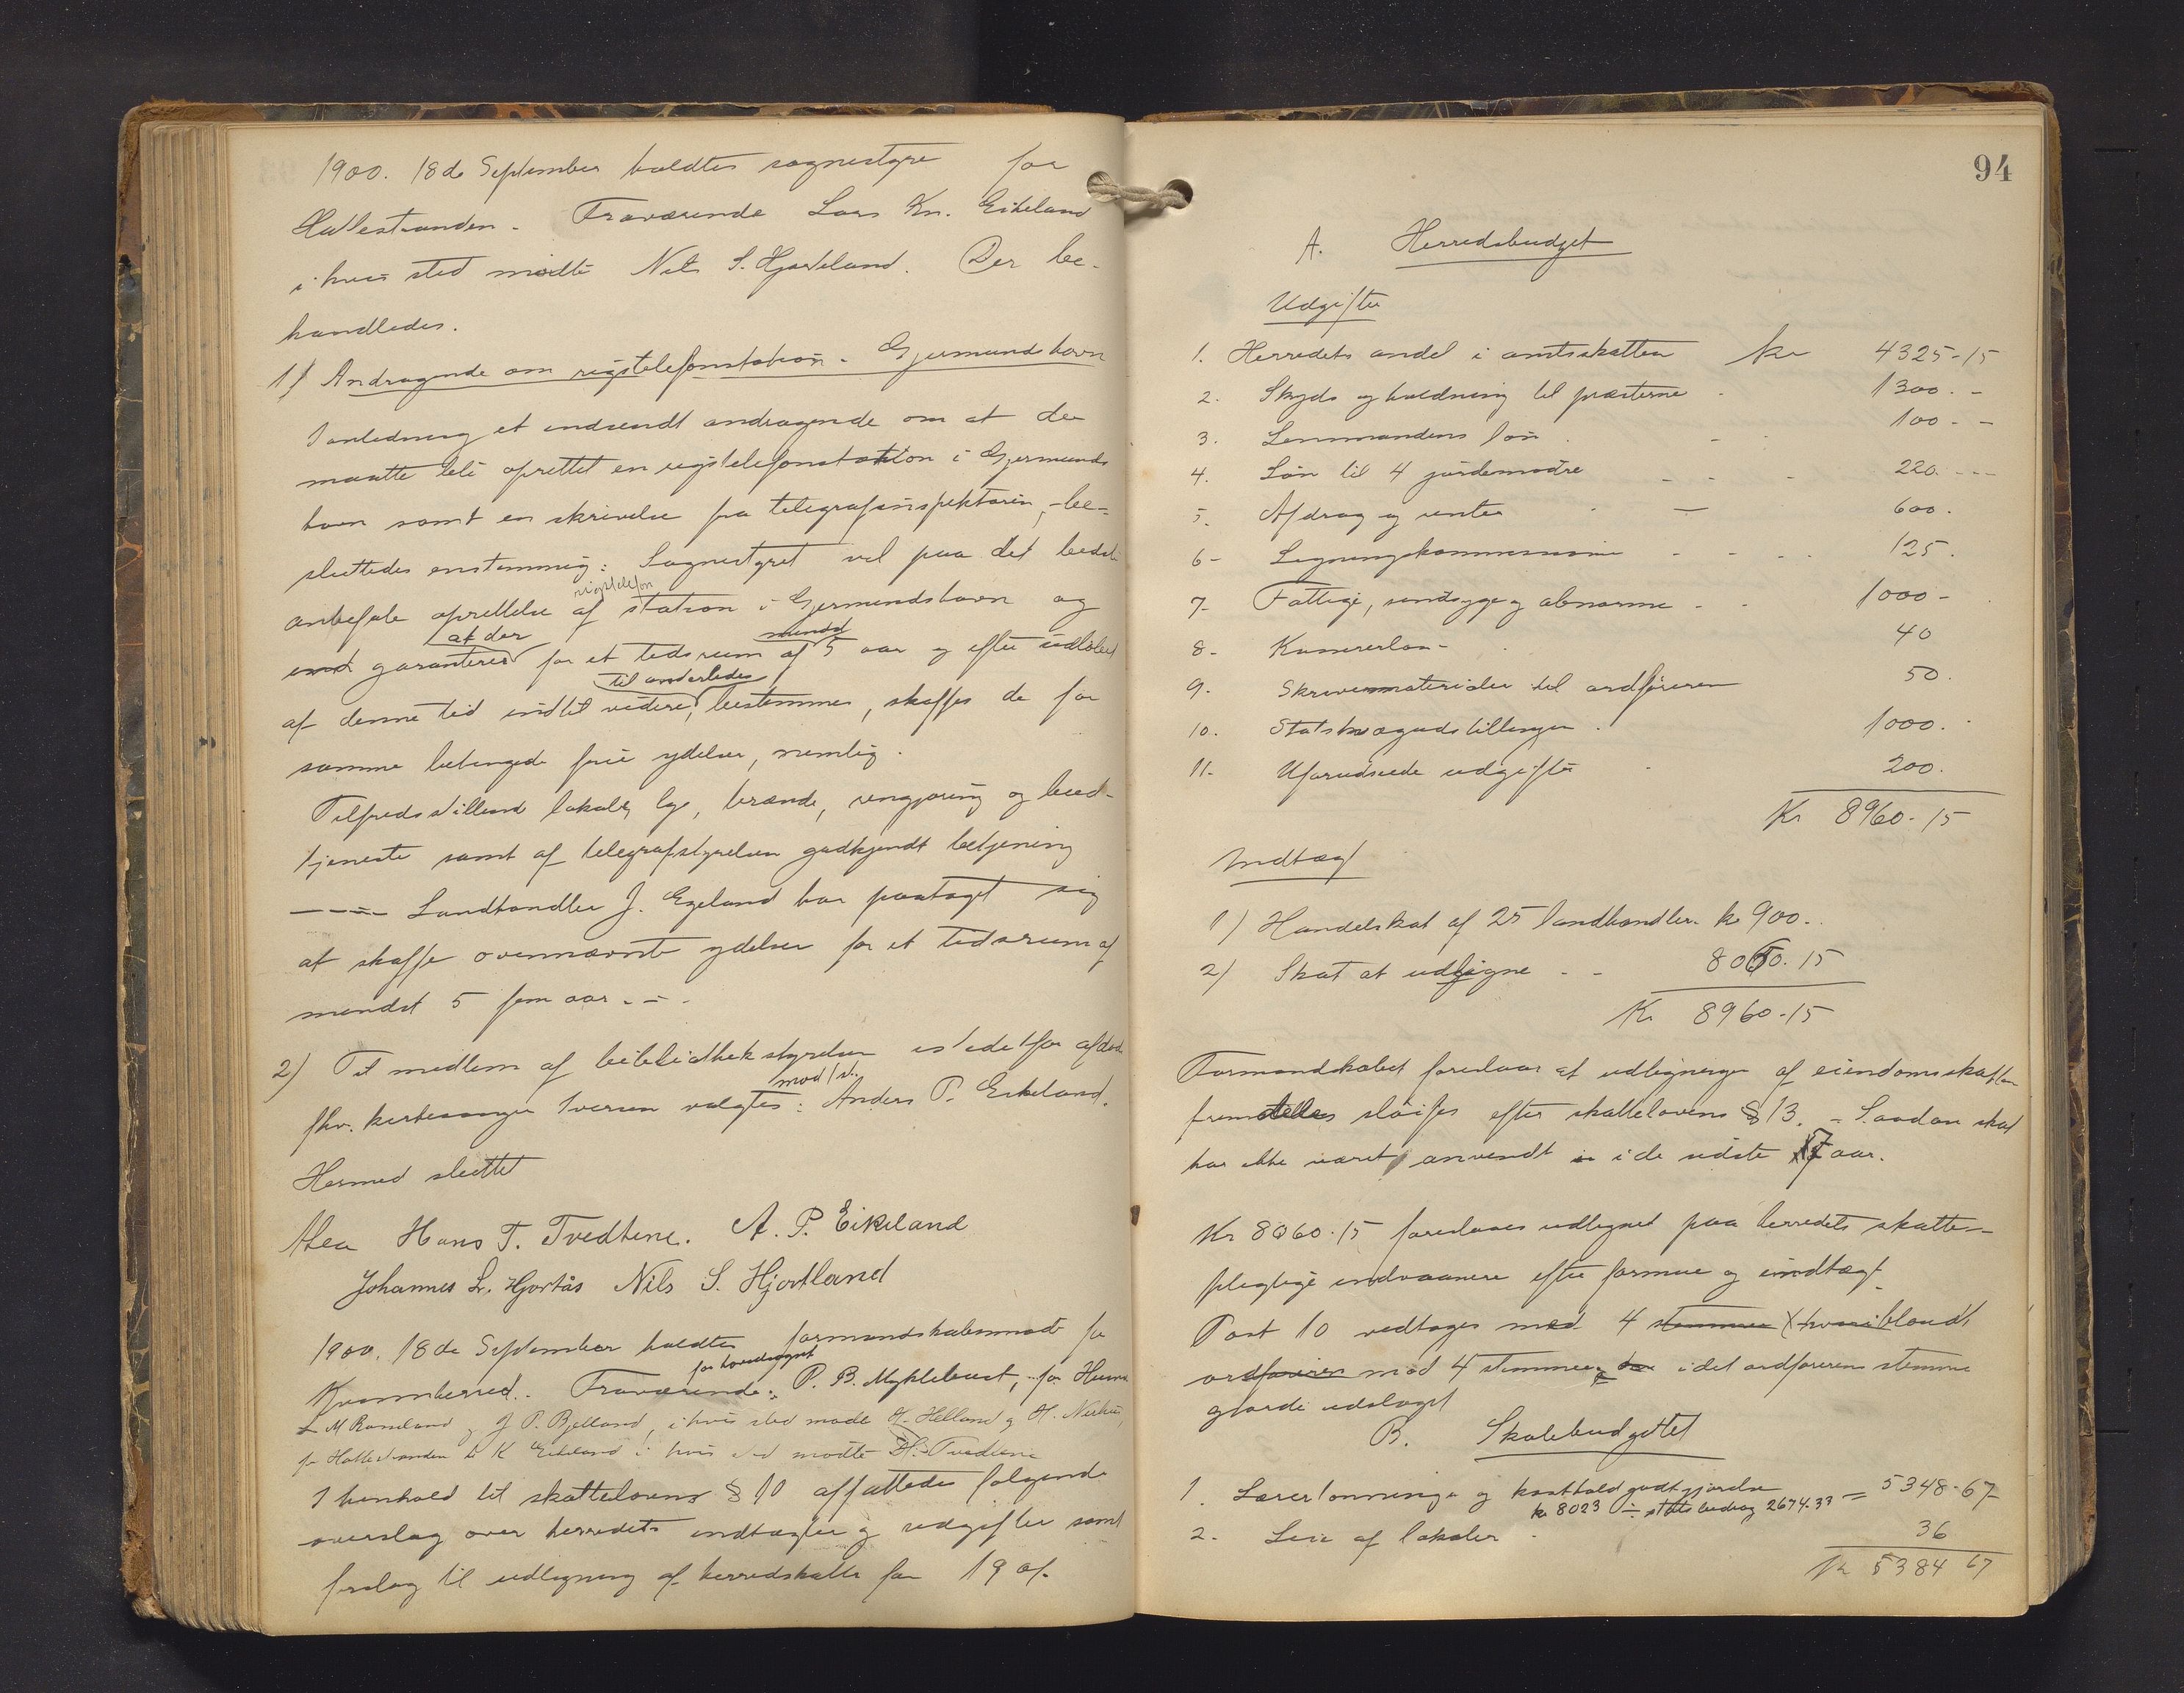 1900. 18de September holdtes sognestyre for
Hatlestranden. Fraværende Lars Kn. Eikeland
i hvis sted mødte Nils S. Hjortland. Der be-
handledes.
1) Andragende om rigstelefonstation. Gjermundshavn
I anledning et indsendt andragende om at der
maatte bli oprettet en rigstelefonstation i Gjermunds
havn samt en skrivelse fra telegrafinspektøren, - be-
sluttedes enstemmig: Sognestyret vil paa det bedste
rigstelefon
anbefale oprettelse af station i Gjermundshavn og
at der mindst
garanteres for et tidsrum af 5 aar og efter udløbet
til anderledes
af denne tid indtil videre, bestemmes, skaffes de for
samme betingede frie ydelser, nemlig.
Tilfredsstillende lokale, lys, brænde, rengjøring og bud-
tjeneste samt af telegrafstyrelsen godkjendt betjening
---- Landhandler J. Egeland har paataget sig
at skaffe ovennævnte ydelser for et tidsrum af
mindst 5 fem aar. - -
2) Til medlem af bibliothekstyrelsen istedetfor afdøde
mod 1 st.
fhv. kirkesanger Iversen valgtes: Anders P. Eikeland.
Hermed sluttet
Hans T. Tvedtene. A. P. Eikeland
Johannes L. Hjortås Nils S. Hjortland
1900. 18de September holdtes formandskabsmøde for
for hovedsognet
Kvamherred. Fraværende: P. B. Myklebust, - for
L M Rameland og J P. Bjelland, i hvis sted møde H. Helland og H.
for Hatlestranden L K Eikeland i hvis sted mødte H. Tvedtene
I henhold til skattelovens § 10 affattedes følgende
overslag over herredets indtægter og udgifter samt
forslag til udligning af herredskatten for 1901.
94
A. Herredsbudget
Udgifter
1. Herredets andel i amtsskatten kr 4325-15
2. Skyds og holdning til præsterne - 1300. -
3. Lensmandens løn . - - 100 - -
4. Løn til 4 jordemødre - - - 220. ---
5. Afdrag og renter - — 600.
6- Ligningskommissionen - - - . 125.
7- Fattige, sindsyge og abnorme - - 1000 -
8- Kasererløn - 40
9. Skrivematerialer til ordføreren 50.
10. Statskvægudstillingen . 1000.
11. Uforudseede udgifter - 200.
Kr 8960-15
Indtægt
1) Handelskat af 25 landhandlere kr 900.
2) Skat at udligne - - 8060.15
Kr 8960-15
Formandskabet foreslaar at udligningen af eiendomsskatten
fremdeles sløifes efter skattelovens § 13. - Saadan skat
har ikke været anvendt i de sidste 7 aar.
Kr 8060.15 foreslaaes udlignet paa herredets skatte-
pligtige indvaanere efter formue og indtægt.
Post 10 vedtages med 4 stemmer (hvoriblandt
ordføreren mod 4 stemmer, idet ordførerens stemme
gjorde udslaget
B. Skolebudgettet
1. Lærerlønninger og kosthold godtgjørelse
kr 8023 ÷ stats bidrag 2674.33 = 5348.67
2. Leie af lokaler . 36
Kr 5384 67